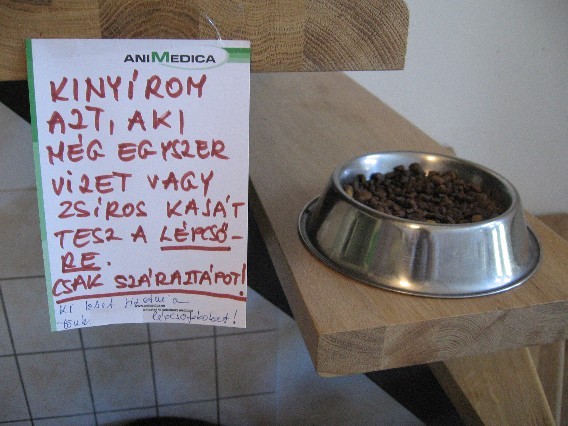 ANIMEDICA
KINYÍROM
AZT, AKI
MÉG EGYSZER
VIZET VAGY
ZSÍROS KAJÁT
TESZ A LÉPCSŐ
RE.
CSAK SZÁRAZTÁPOT!
Ki lehet fizetni a
lépcsőfokokat!